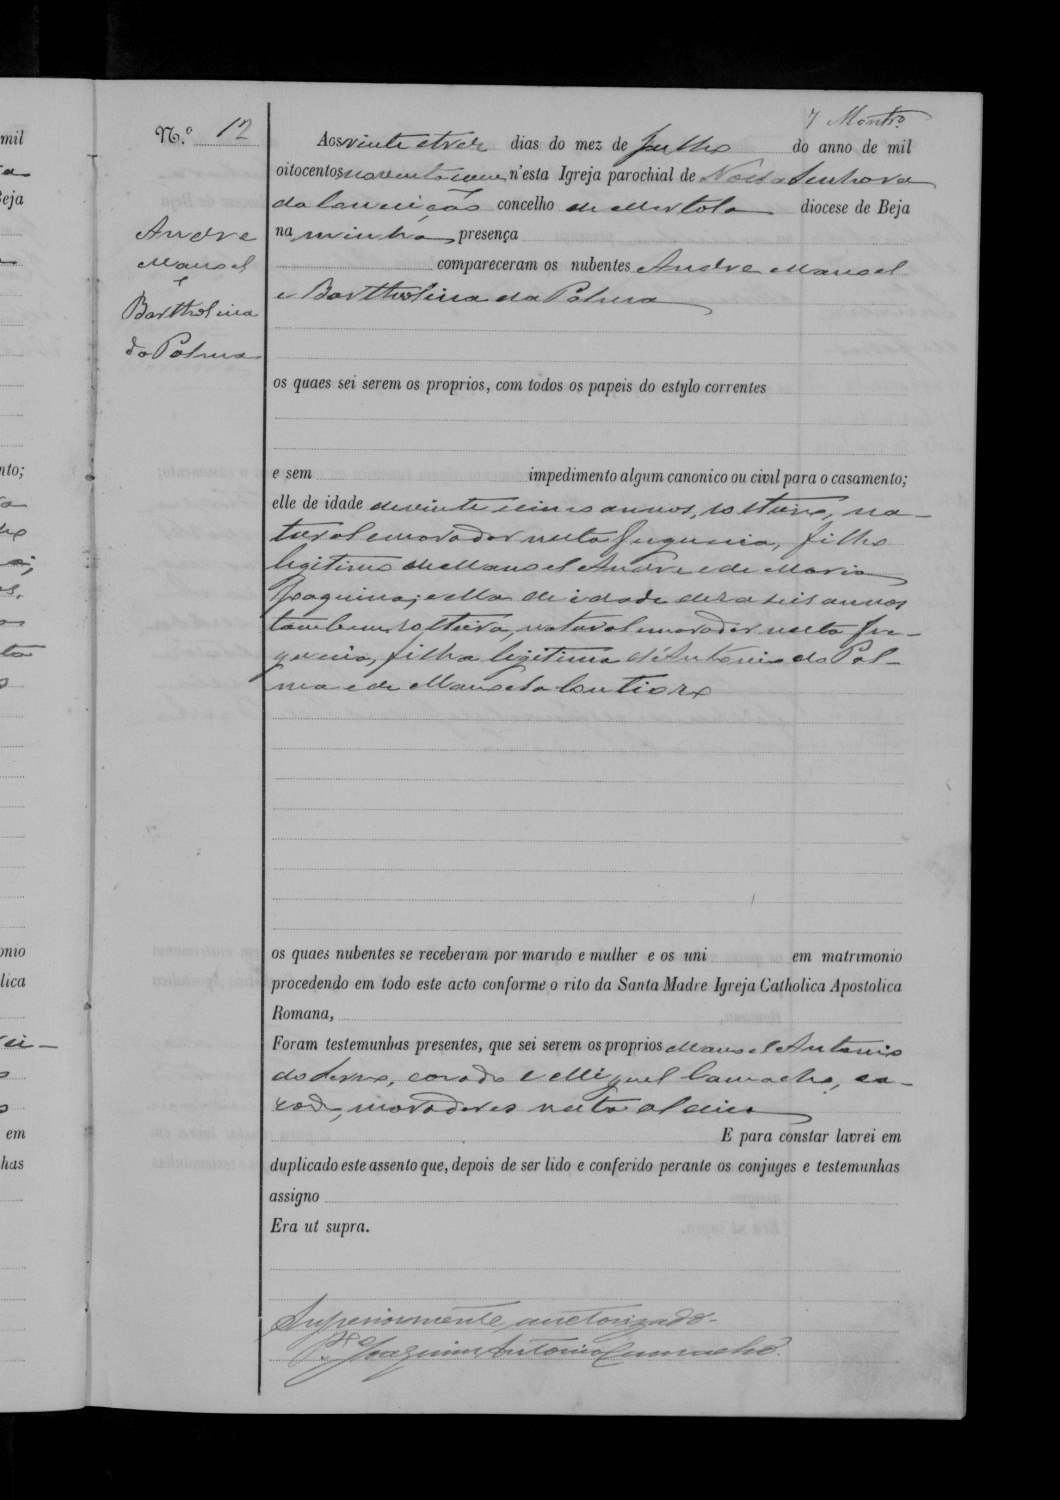 7 Montrº
N.º 12
Aos vinte e tres dias do mez de Julho do anno de mil
oitocentos noventa e um n'esta Igreja parochial de Nossa Senhora
da Conceição concelho de Mertola diocese de Beja
na minha presença
compareceram os nubentes Andre Manoel
e Barthholina da Palma
Andre
Manoel
e
Bartholina
da Palma
os quaes sei serem os proprios, com todos os papeis do estylo correntes
e sem impedimento algum canonico ou civil para o casamento;
elle de idade de vinte cinco annos, solteiro, na-
tural e morador nesta freguesia, filho
legitimo de Manoel Andre e de Maria
Joaquina; e ella de idade deza seis annos
tambem solteira, natural morador nesta fre-
guesia, filha legitima d'Antonio da Pal-
ma e de Manoela
os quaes nubentes se receberam por marido e mulher e os uni em matrimonio
procedendo em todo este acto conforme o rito da Santa Madre Igreja Catholica Apostolica
Romana,
Foram testemunhas presentes, que sei serem os proprios Manoel Antonio
do Serro, casado e Miguel Camacho, ca-
zado, moradores nesta aldeia
E para constar lavrei em
duplicado este assento que, depois de ser lido e conferido perante os conjuges e testemunhas
assigno
Era ut supra.
Superiormente auctorizado.
Pe. Joaquim Antonio Camacho.